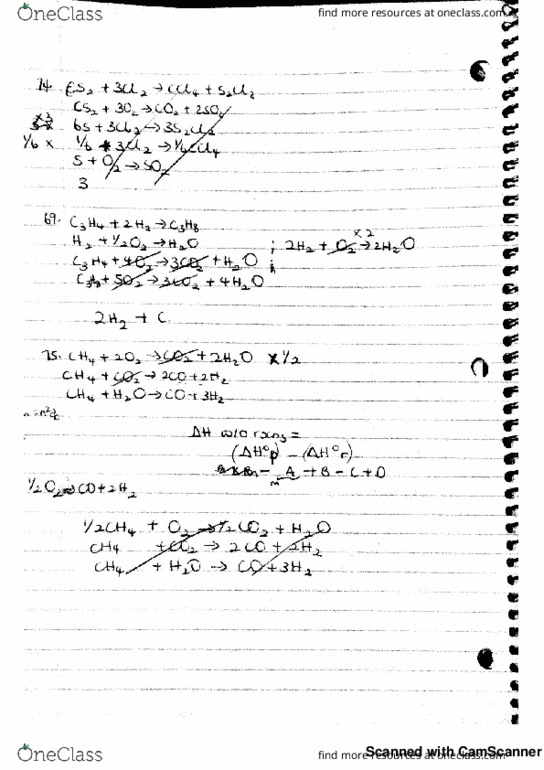 OneClass
find more resources at oneclass.com
74. CS2 + 3Cl2 → CCl4 + S2Cl2
CS2 + 3O2 → CO2 + 2SO2
6S + 3Cl2 → 3S2Cl2
1/6 x 1/6 + 3Cl2 → 1/6 CCl4
S + O2 → SO2
3
69. C3H4 + 2H2 → C3H8
x 2
H2 + 1/2O2 → H2O ; 2H2 + O2 → 2H2O
C3H4 + 4O2 → 3CO2 + H2O ;
C3H8 + 5O2 → 3CO2 + 4H2O
2H2 + C
75. CH4 + 2O2 → CO2 + 2H2O x 1/2
CH4 + CO2 → 2CO + 2H2
CH4 + H2O → CO + 3H2
ΔH w/o rxns =
(ΔH°p) - (ΔH°r)
- A + B - C + D
1/2 O2 → CO + 2H2
1/2CH4 + O2 → 1/2CO2 + H2O
CH4 + CO2 → 2CO + 2H2
CH4 + H2O → CO + 3H2
OneClass
find more resources at oneclass.com
Scanned with CamScanner